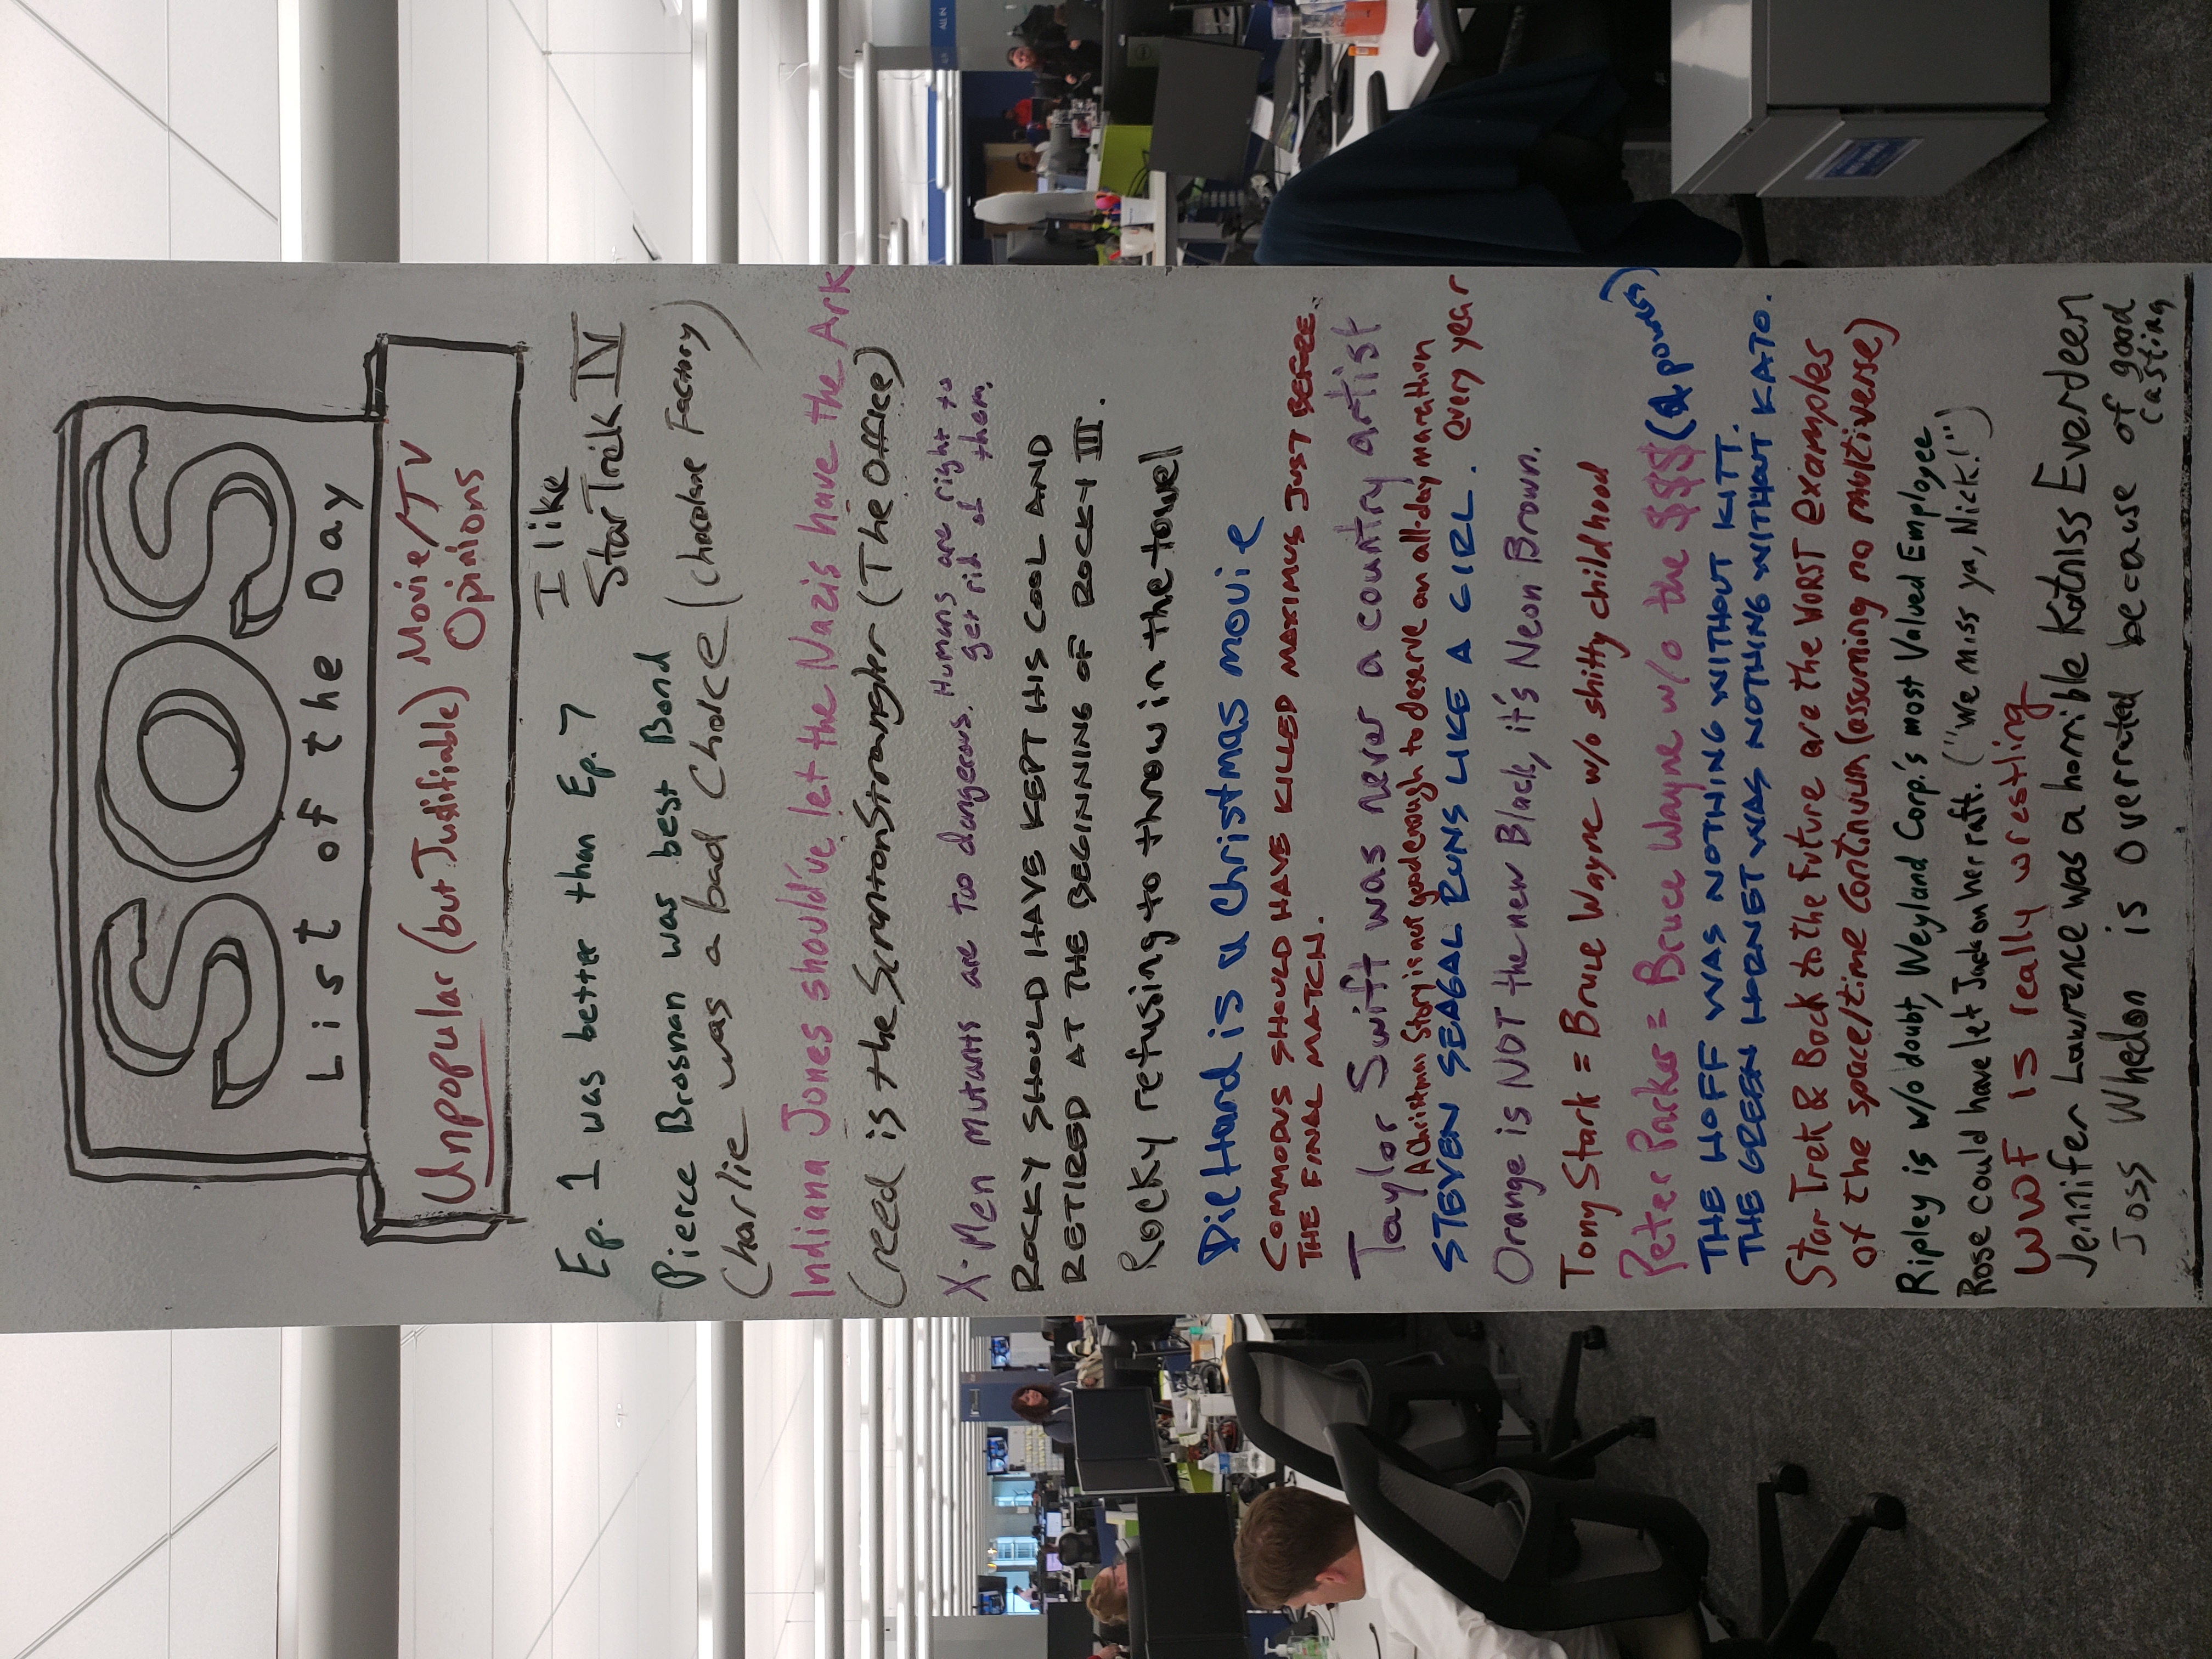 SOS
List of the Day
Unpopular (but Justifiable) Movie/TV
Opinions
Ep. 1 was better than Ep. 7
I like
Star Trek IV
Pierce Brosnan was best Bond
Charlie was a bad Choice (Chocolate Factory)
Indiana Jones should've let the Nazis have the Ark
Creed is the Scranton Strangler (The Office)
X-Men mutants are too dangerous. Humans are right to
get rid of them.
ROCKY SHOULD HAVE KEPT HIS COOL AND
RETIRED AT THE BEGINNING OF ROCKY III.
Rocky refusing to throw in the towel
Die Hard is a Christmas movie
COMMODUS SHOULD HAVE KILLED MAXIMUS JUST BEFORE
THE FINAL MATCH.
Taylor Swift was never a country artist
A Christmas Story is not good enough to deserve an all-day marathon
every year
STEVEN SEAGAL RUNS LIKE A GIRL.
Orange is NOT the new Black, it's Neon Brown.
Tony Stark = Bruce Wayne w/o shitty childhood
Peter Parker = Bruce Wayne w/o the $$$ (& powers)
THE HOFF WAS NOTHING WITHOUT KITT.
THE GREEN HORNET WAS NOTHING WITHOUT KATO.
Star Trek & Back to the Future are the WORST examples
of the space/time continuum (assuming no multiverse)
Ripley is w/o doubt, Weyland Corp.'s most Valued Employee
Rose could have let Jack on her raft. ("We miss ya, Nick!")
WWF is really wrestling
Jennifer Lawrence was a horrible Katniss Everdeen
Joss Whedon is overrated because of good
casting
ALL IN